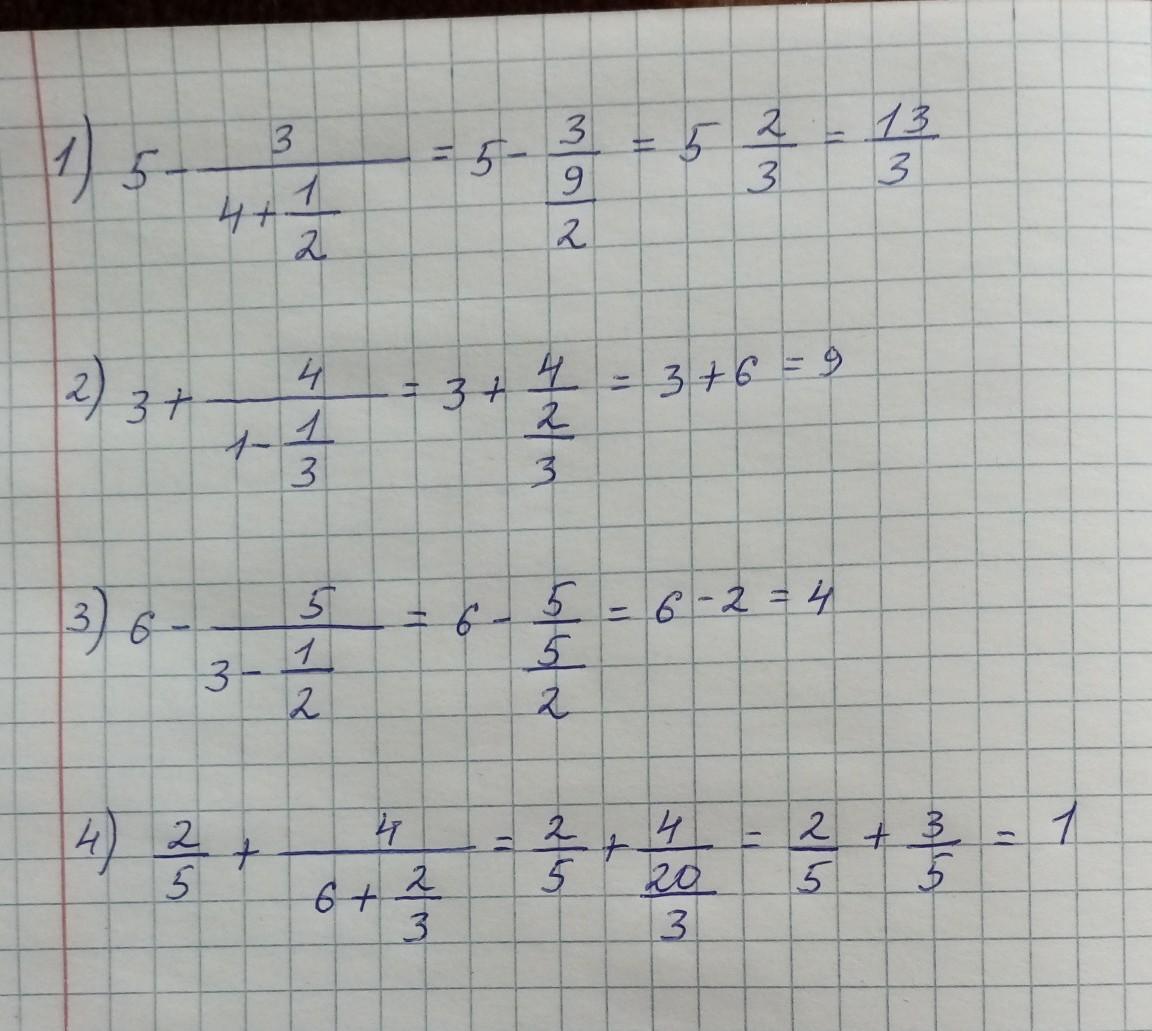 1) 5 - 3/(4 + 1/2) = 5 - 3/(9/2) = 5 2/3 = 13/3
2) 3 + 4/(1 - 1/3) = 3 + 4/(2/3) = 3 + 6 = 9
3) 6 - 5/(3 - 1/2) = 6 - 5/(5/2) = 6 - 2 = 4
4) 2/5 + 4/(6 + 2/3) = 2/5 + 4/(20/3) = 2/5 + 3/5 = 1